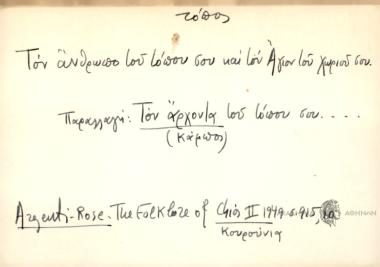 τόπος
Τον άνθρωπο του τόπου σου και τον Άγιον του χωριού σου.
Παραλλαγή: Τον άρχοντα του τόπου σου....
(Κάμπος)
Argenti-Rose. The Folklore of Chios II 1949. σ. 915,
Κουρούνια
ΑΘΗΝΩΝ